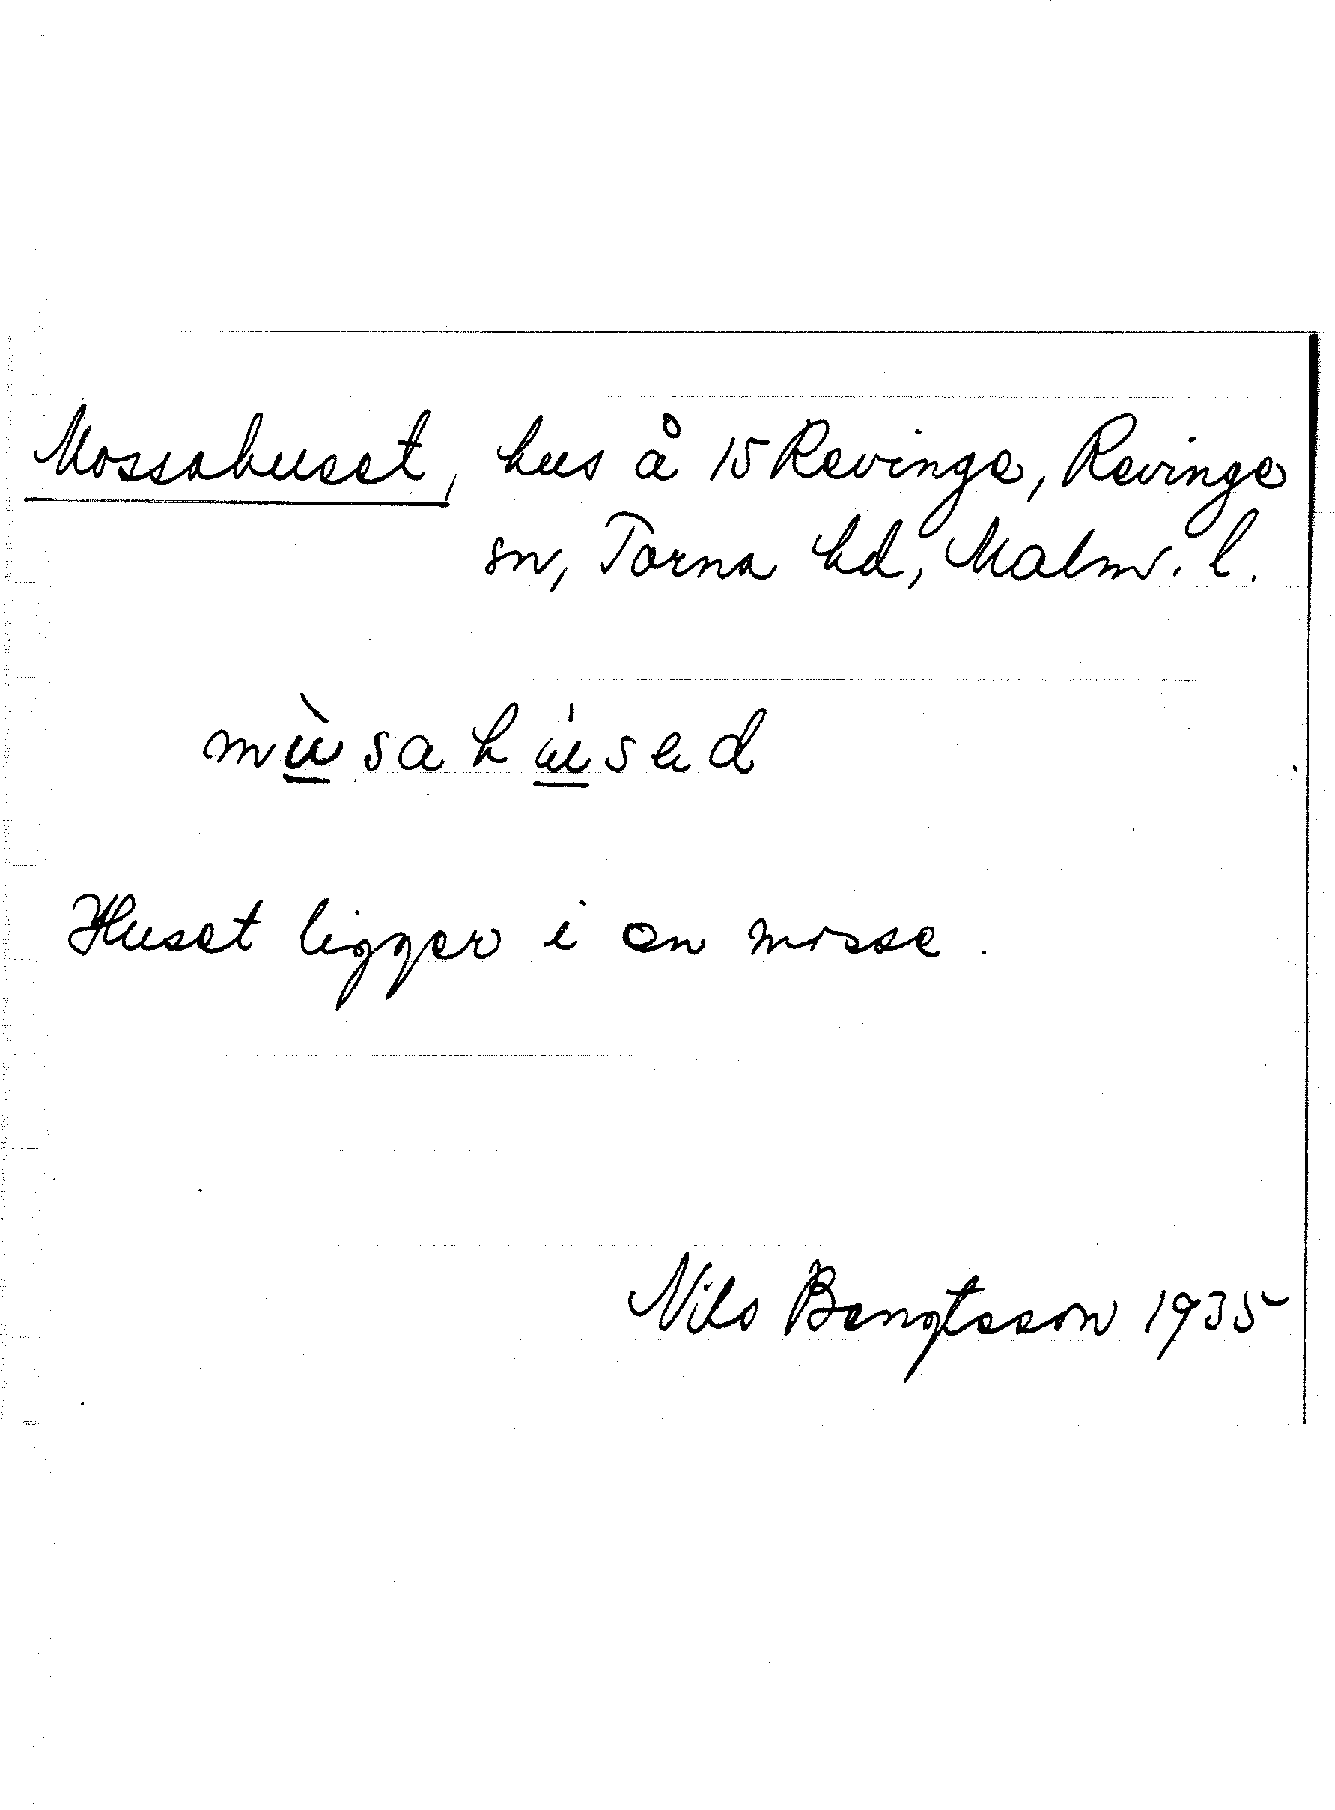 Mossahuset, hus å 15 Revinge, Revinge
sn, Torna hd, Malm. l.
mùsahúsed
Huset ligger i en mosse.
Nils Bengtsson 1935